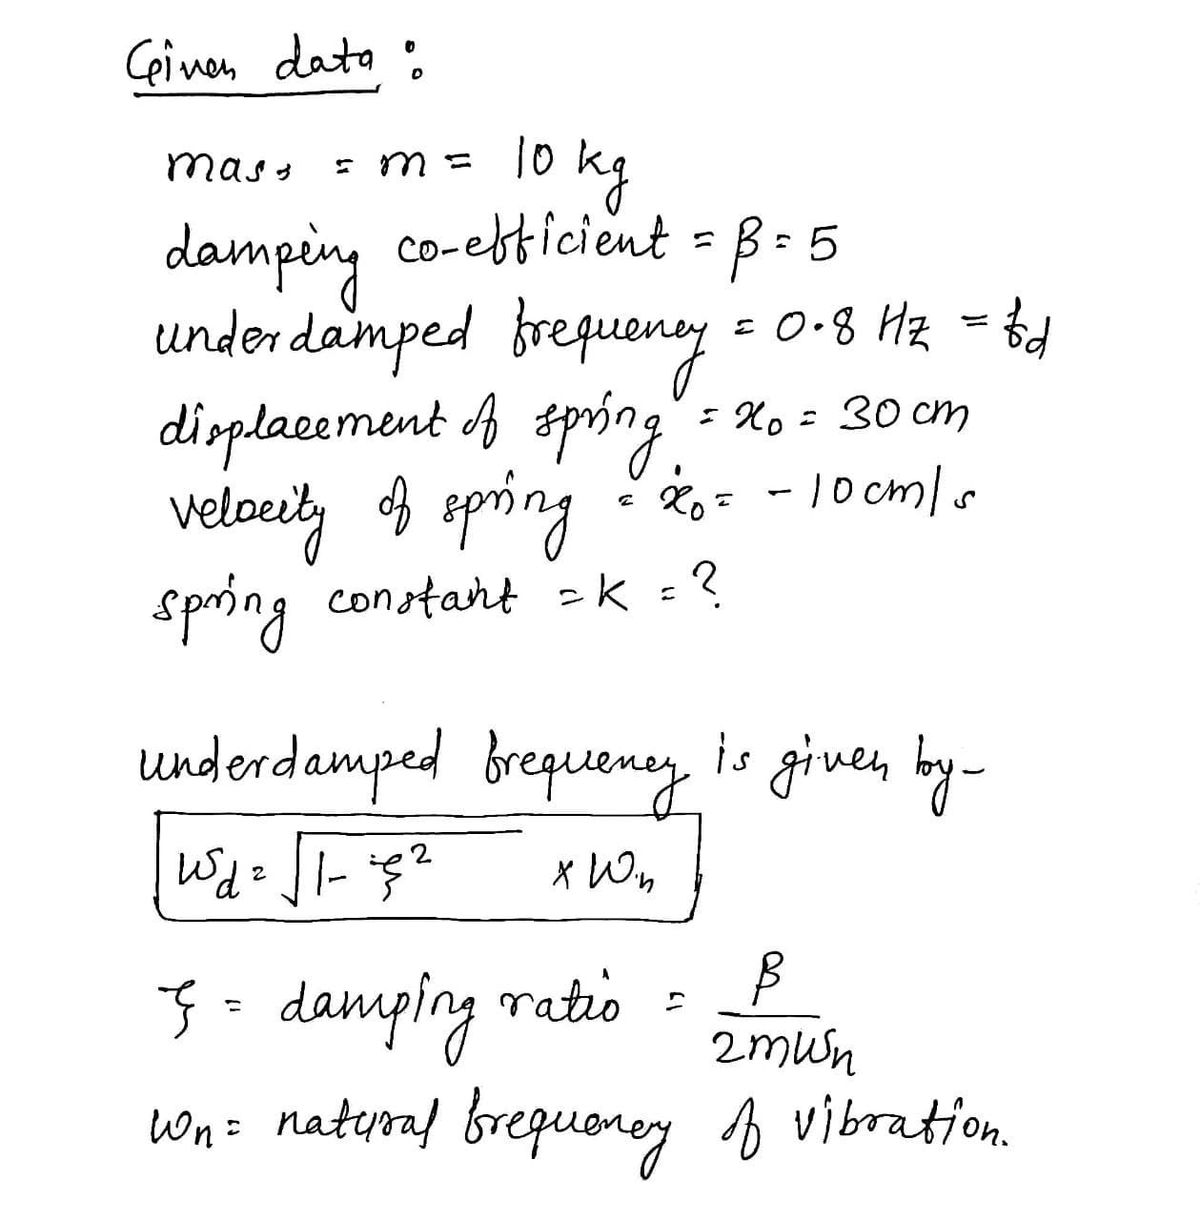 Given data :
mass = m = 10 kg
damping co-efficient = β = 5
underdamped frequency = 0.8 Hz = fd
displacement of spring = x₀ = 30 cm
velocity of spring = ẋ₀ = - 10 cm/s
spring constant = K = ?
underdamped frequency is given by-
ωd = √(1- ξ²) × ωn
ξ = damping ratio = β / 2mωn
ωn = natural frequency of vibration.